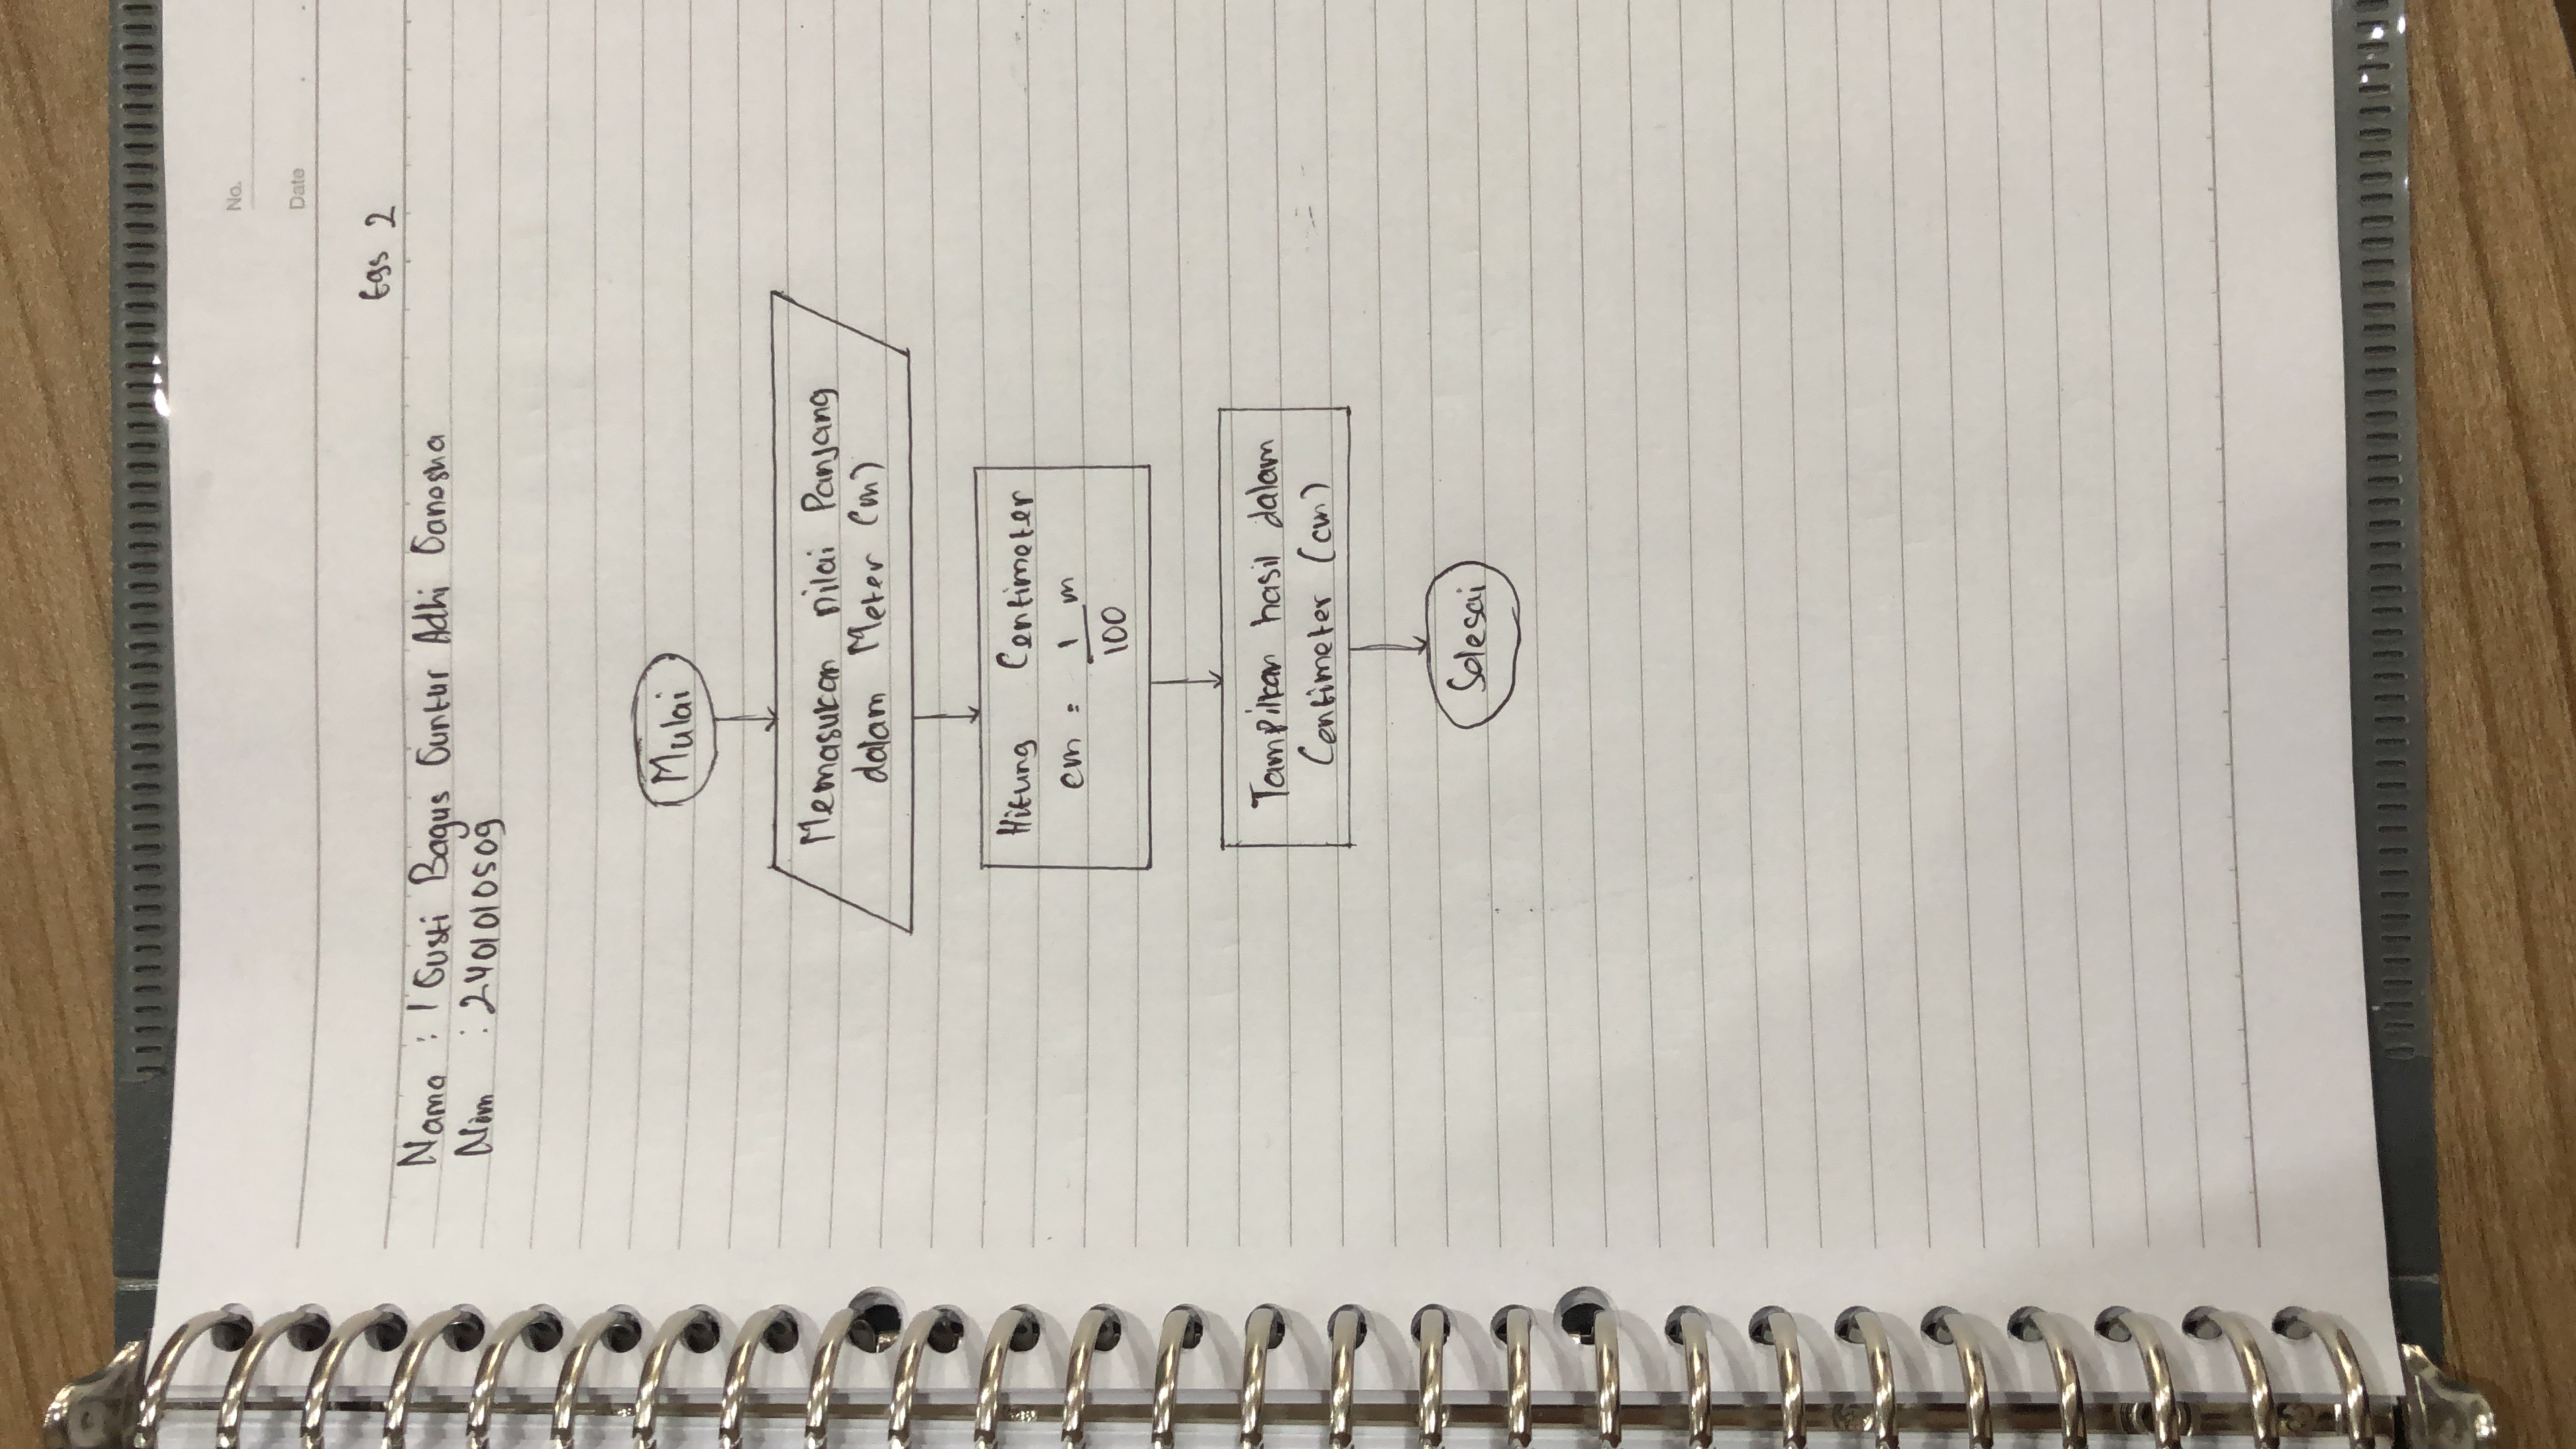 No.
Date
tgs 2
Nama : I Gusti Bagus Guntur Adhi Ganesha
Nim : 2401010509
Mulai
Memasukan nilai Panjang
dalam Meter (m)
Hitung Centimeter
cm = 1/100 m
Tampilkan hasil dalam
Centimeter (cm)
Selesai